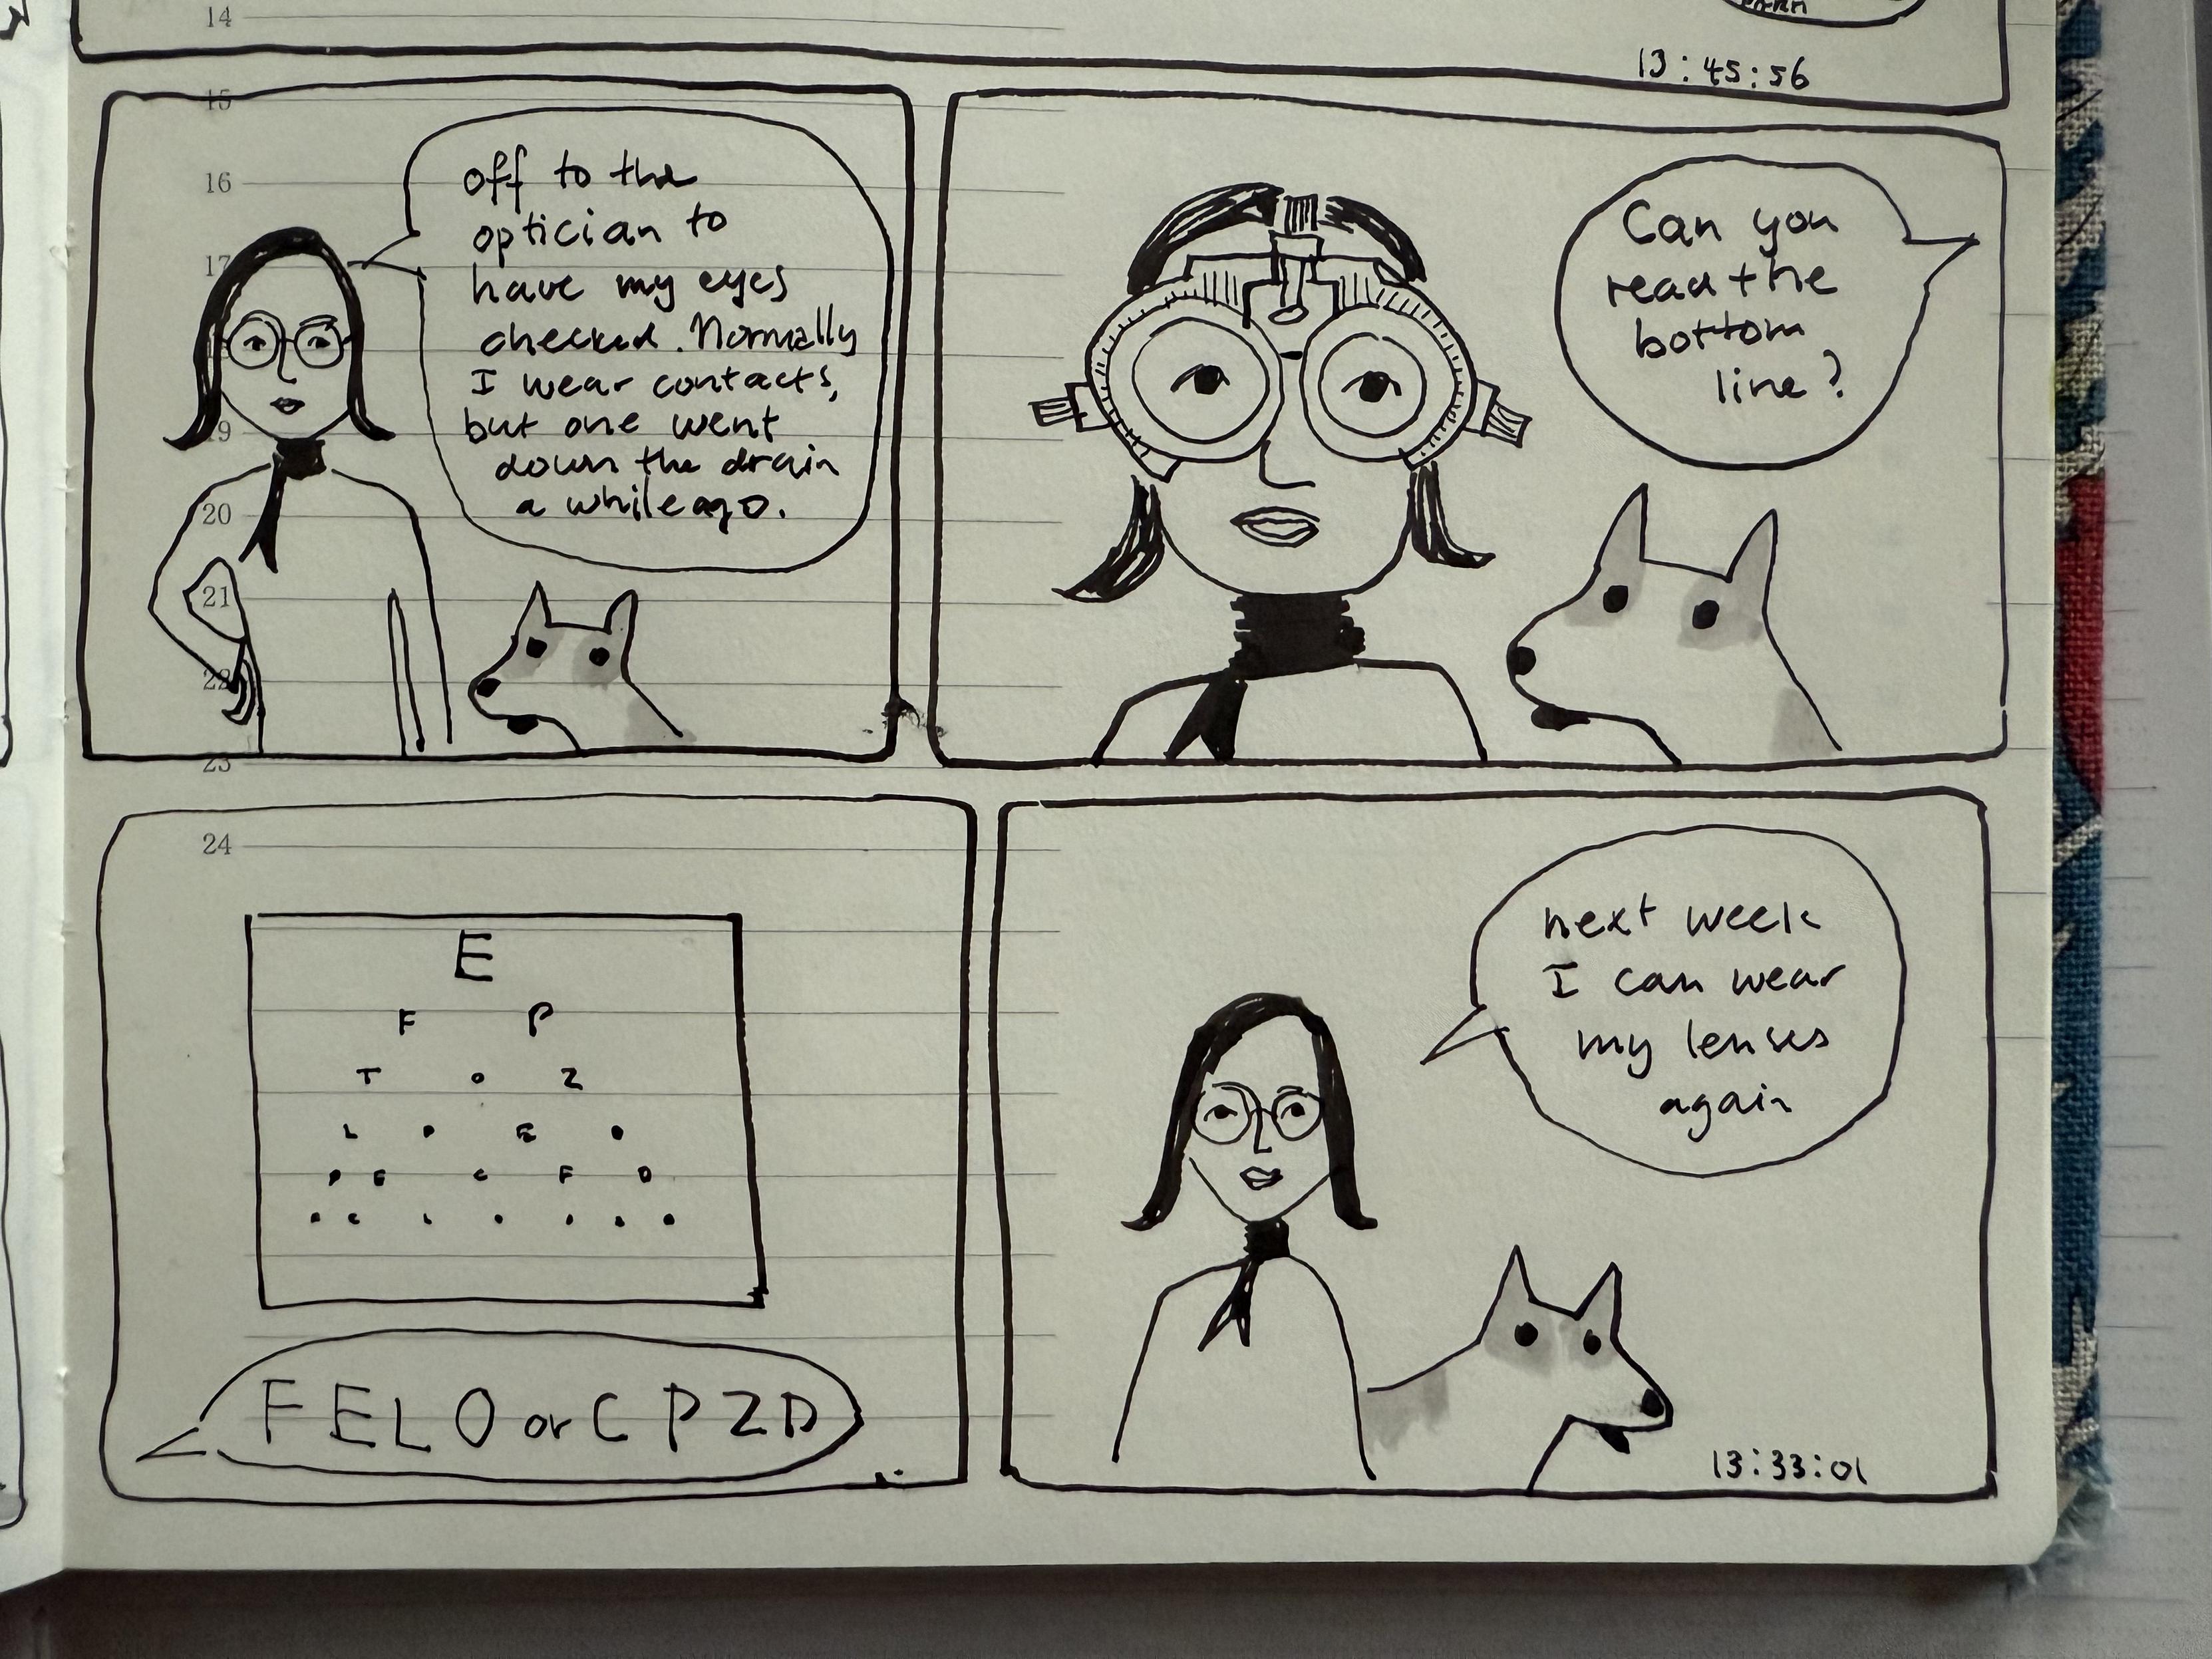 14
13:45:56
15
16
17
19
20
21
22
23
24
off to the
optician to
have my eyes
checked. Normally
I wear contacts,
but one went
down the drain
a while ago.
Can you
read the
bottom
line?
E
F P
T O Z
L P E D
P E C F D
FELO or CPZD
next week
I can wear
my lenses
again
13:33:01